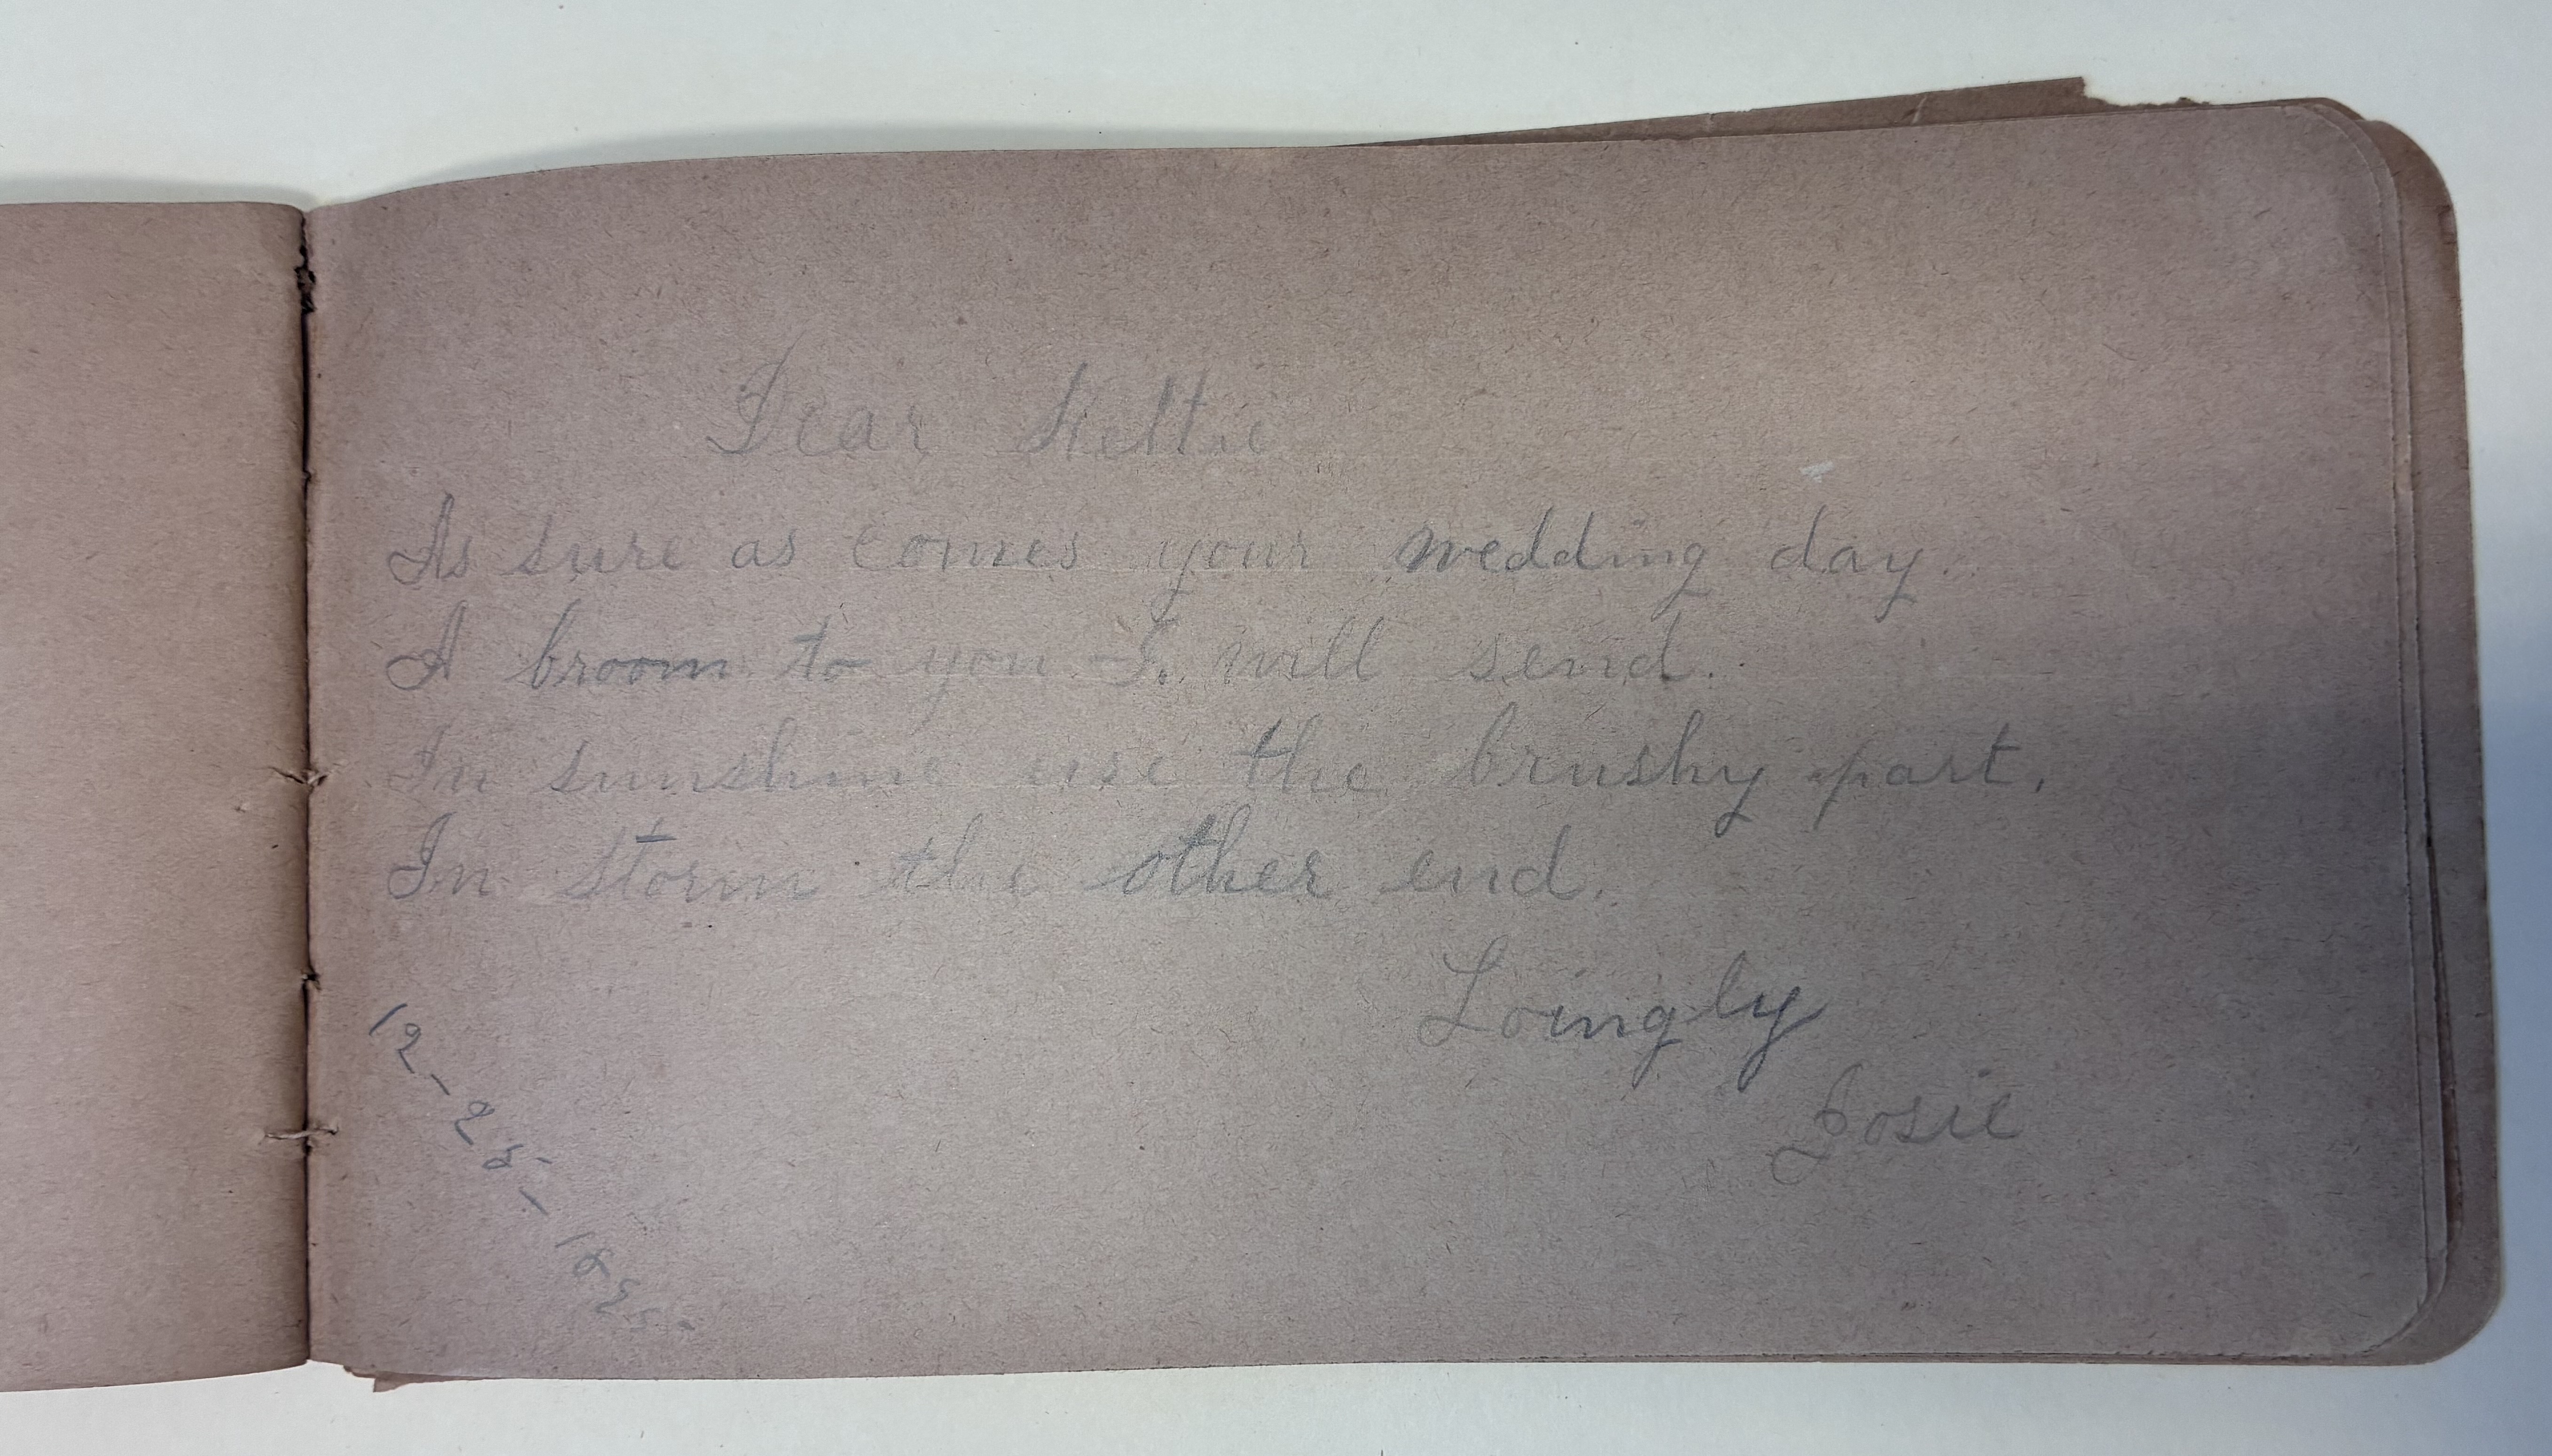 Dear Hettie
As sure as comes your wedding day.
A broom to you I. will send.
In sunshine use the brushy part.
In Storm the other end.
Loingly
Josie
12-25-